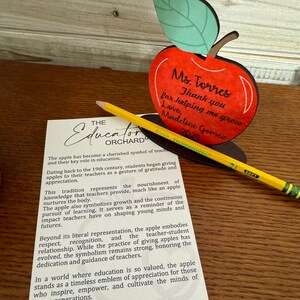 Ms. Torres
Thank you
for helping me grow
Love,
Madeline Gomez
THE
Educator
ORCHARD
The apple has become a cherished symbol of teachers
and their key role in education.
Dating back to the 19th century, students began giving
apples to their teachers as a gesture of gratitude and
appreciation.
This tradition represents the nourishment of
knowledge that teachers provide, much like an apple
nurtures the body.
The apple also symbolises growth and the continuous
pursuit of learning. It serves as a reminder of the
impact teachers have on shaping young minds and
futures.
Beyond its literal representation, the apple embodies
respect, recognition, and the teacher-student
relationship. While the practice of giving apples has
evolved, the symbolism remains strong, honoring the
dedication and guidance of teachers.
In a world where education is so valued, the apple
stands as a timeless emblem of appreciation for those
who inspire, empower, and cultivate the minds of
generations.